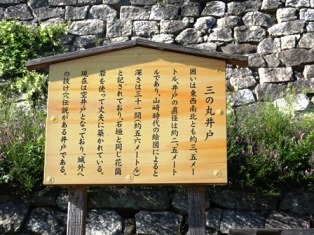 三の丸井戸
囲いは東西南北とも約三、五メー
トル、井戸の直径は約二、五メート
ルであり、山崎時代の絵図によると
深さは三十一間(約五六メートル)
と記されており、石垣と同じ花崗
岩を使って丈夫に築かれている。
現在は空井戸となっており、城外へ
の抜け穴伝説がある井戸である。